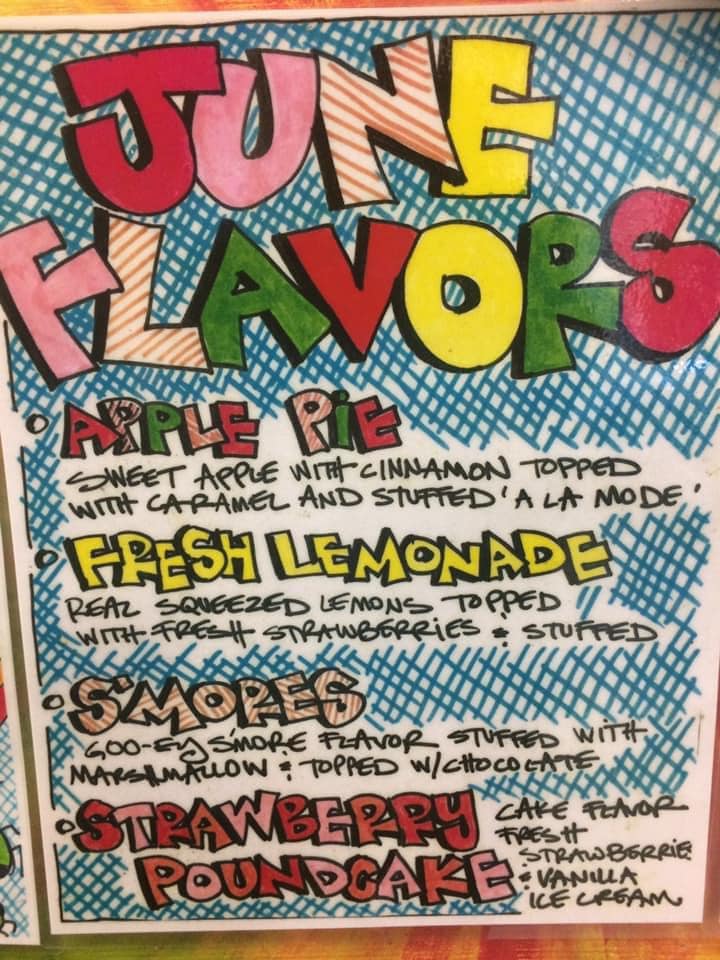 JUNE
FLAVORS
APPLE PIE
SWEET APPLE WITH CINNAMON TOPPED
WITH CARAMEL AND STUFFED 'A LA MODE'
FRESH LEMONADE
REAL SQUEEZED LEMONS TOPPED
WITH FRESH STRAWBERRIES & STUFFED
S'MORES
GOO-EY S'MORE FLAVOR STUFFED WITH
MARSHMALLOW & TOPPED W/CHOCOLATE
STRAWBERRY
POUNDCAKE
CAKE FLAVOR
FRESH
STRAWBERRIE
& VANILLA
ICE CREAM